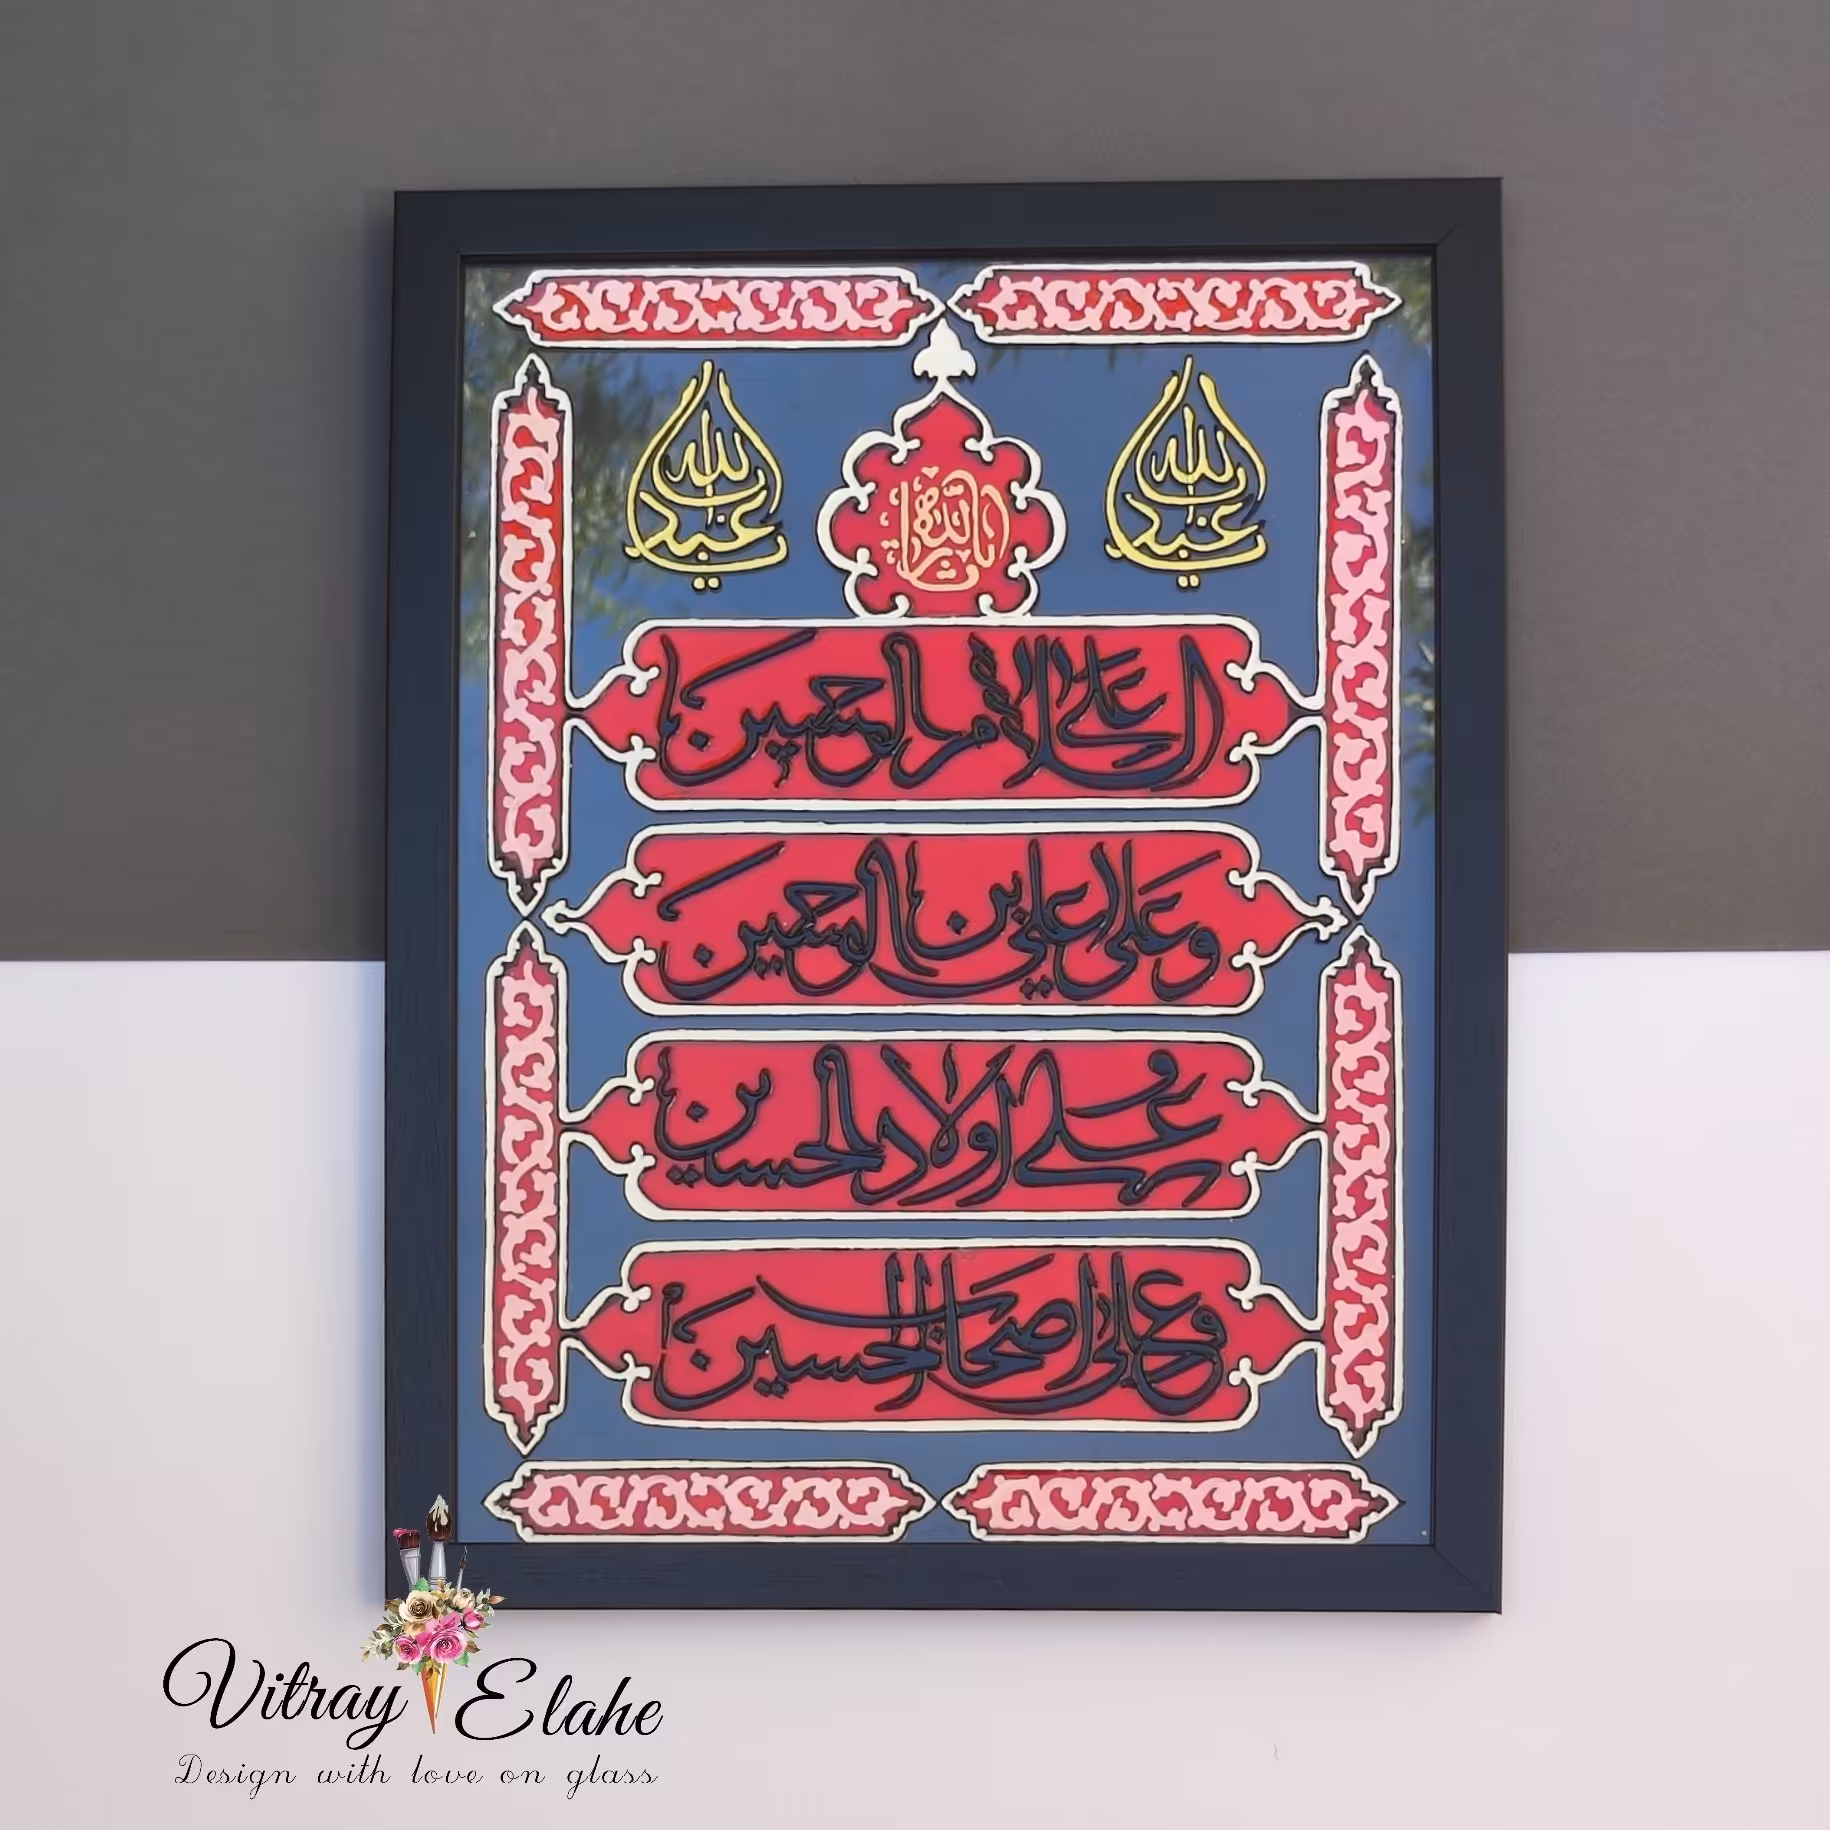 یا اباعبدالله
انا لله و انا الیه راجعون
یا اباعبدالله
السلام علی الحسین
وعلی علی بن الحسین
وعلی اولاد الحسین
وعلی اصحاب الحسین
Vitray Elahe
Design with love on glass